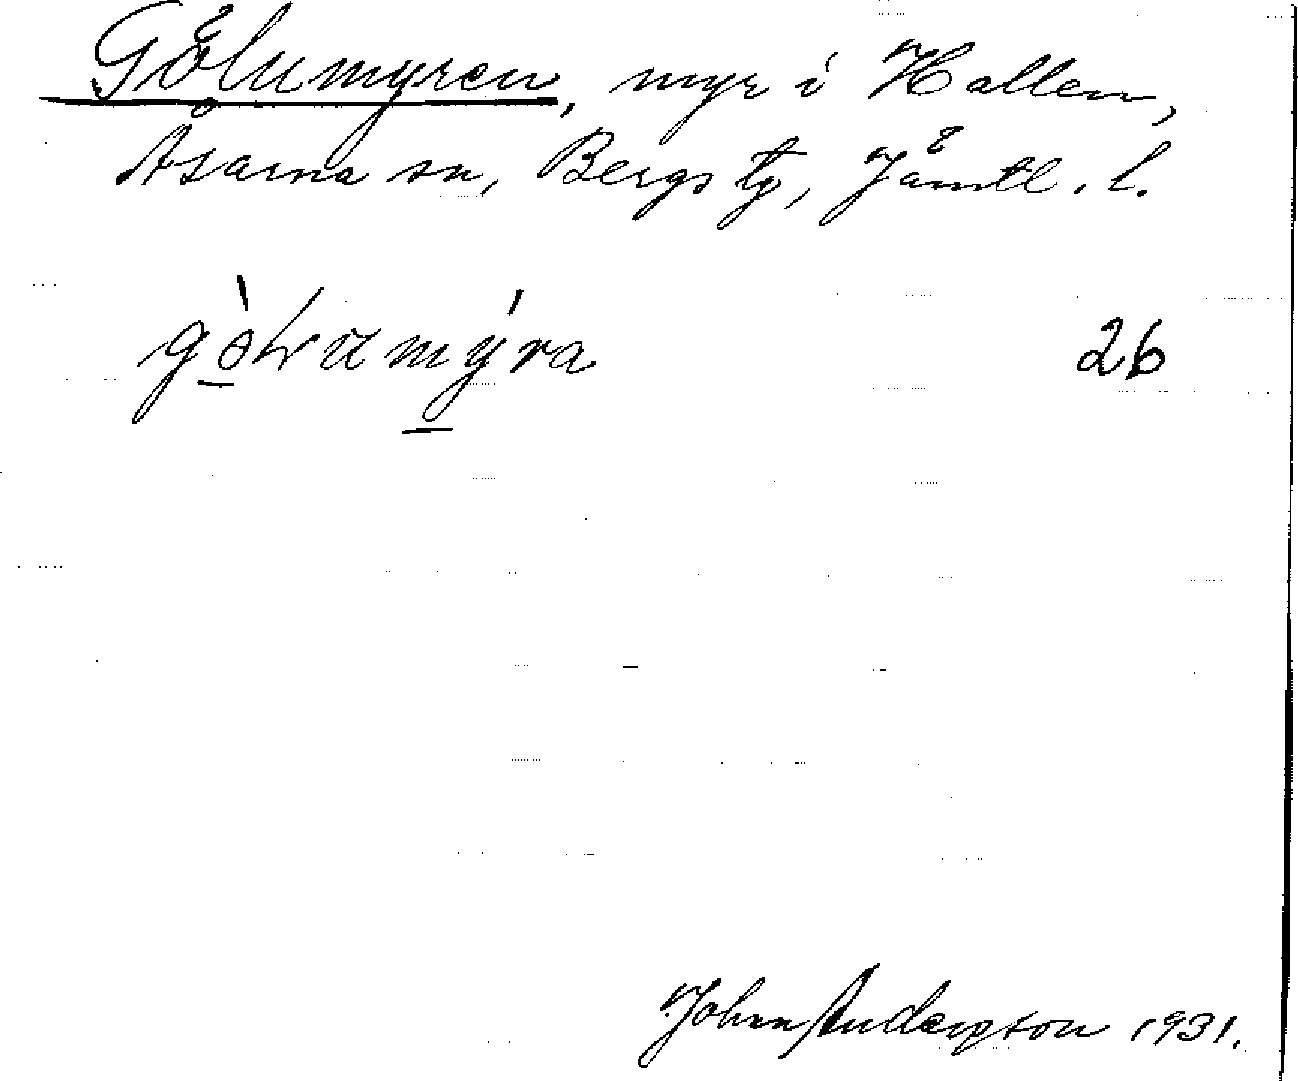 Gölumyren, myr i Hallen,
Åsarna sn, Bergs tg, Jämtl. l.
26
John Andersson 1931.